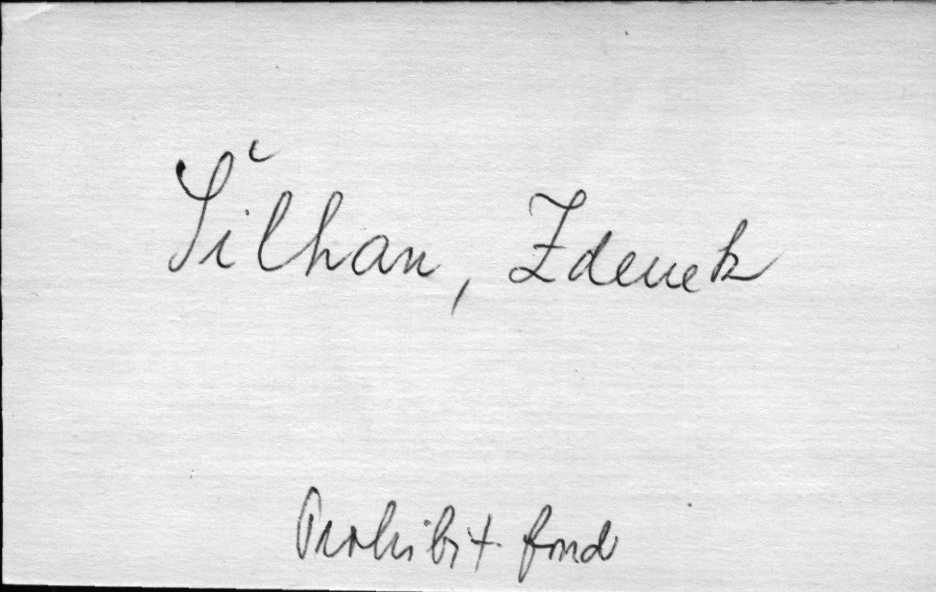 Šilhan, Zdenek
Prohibit. fond